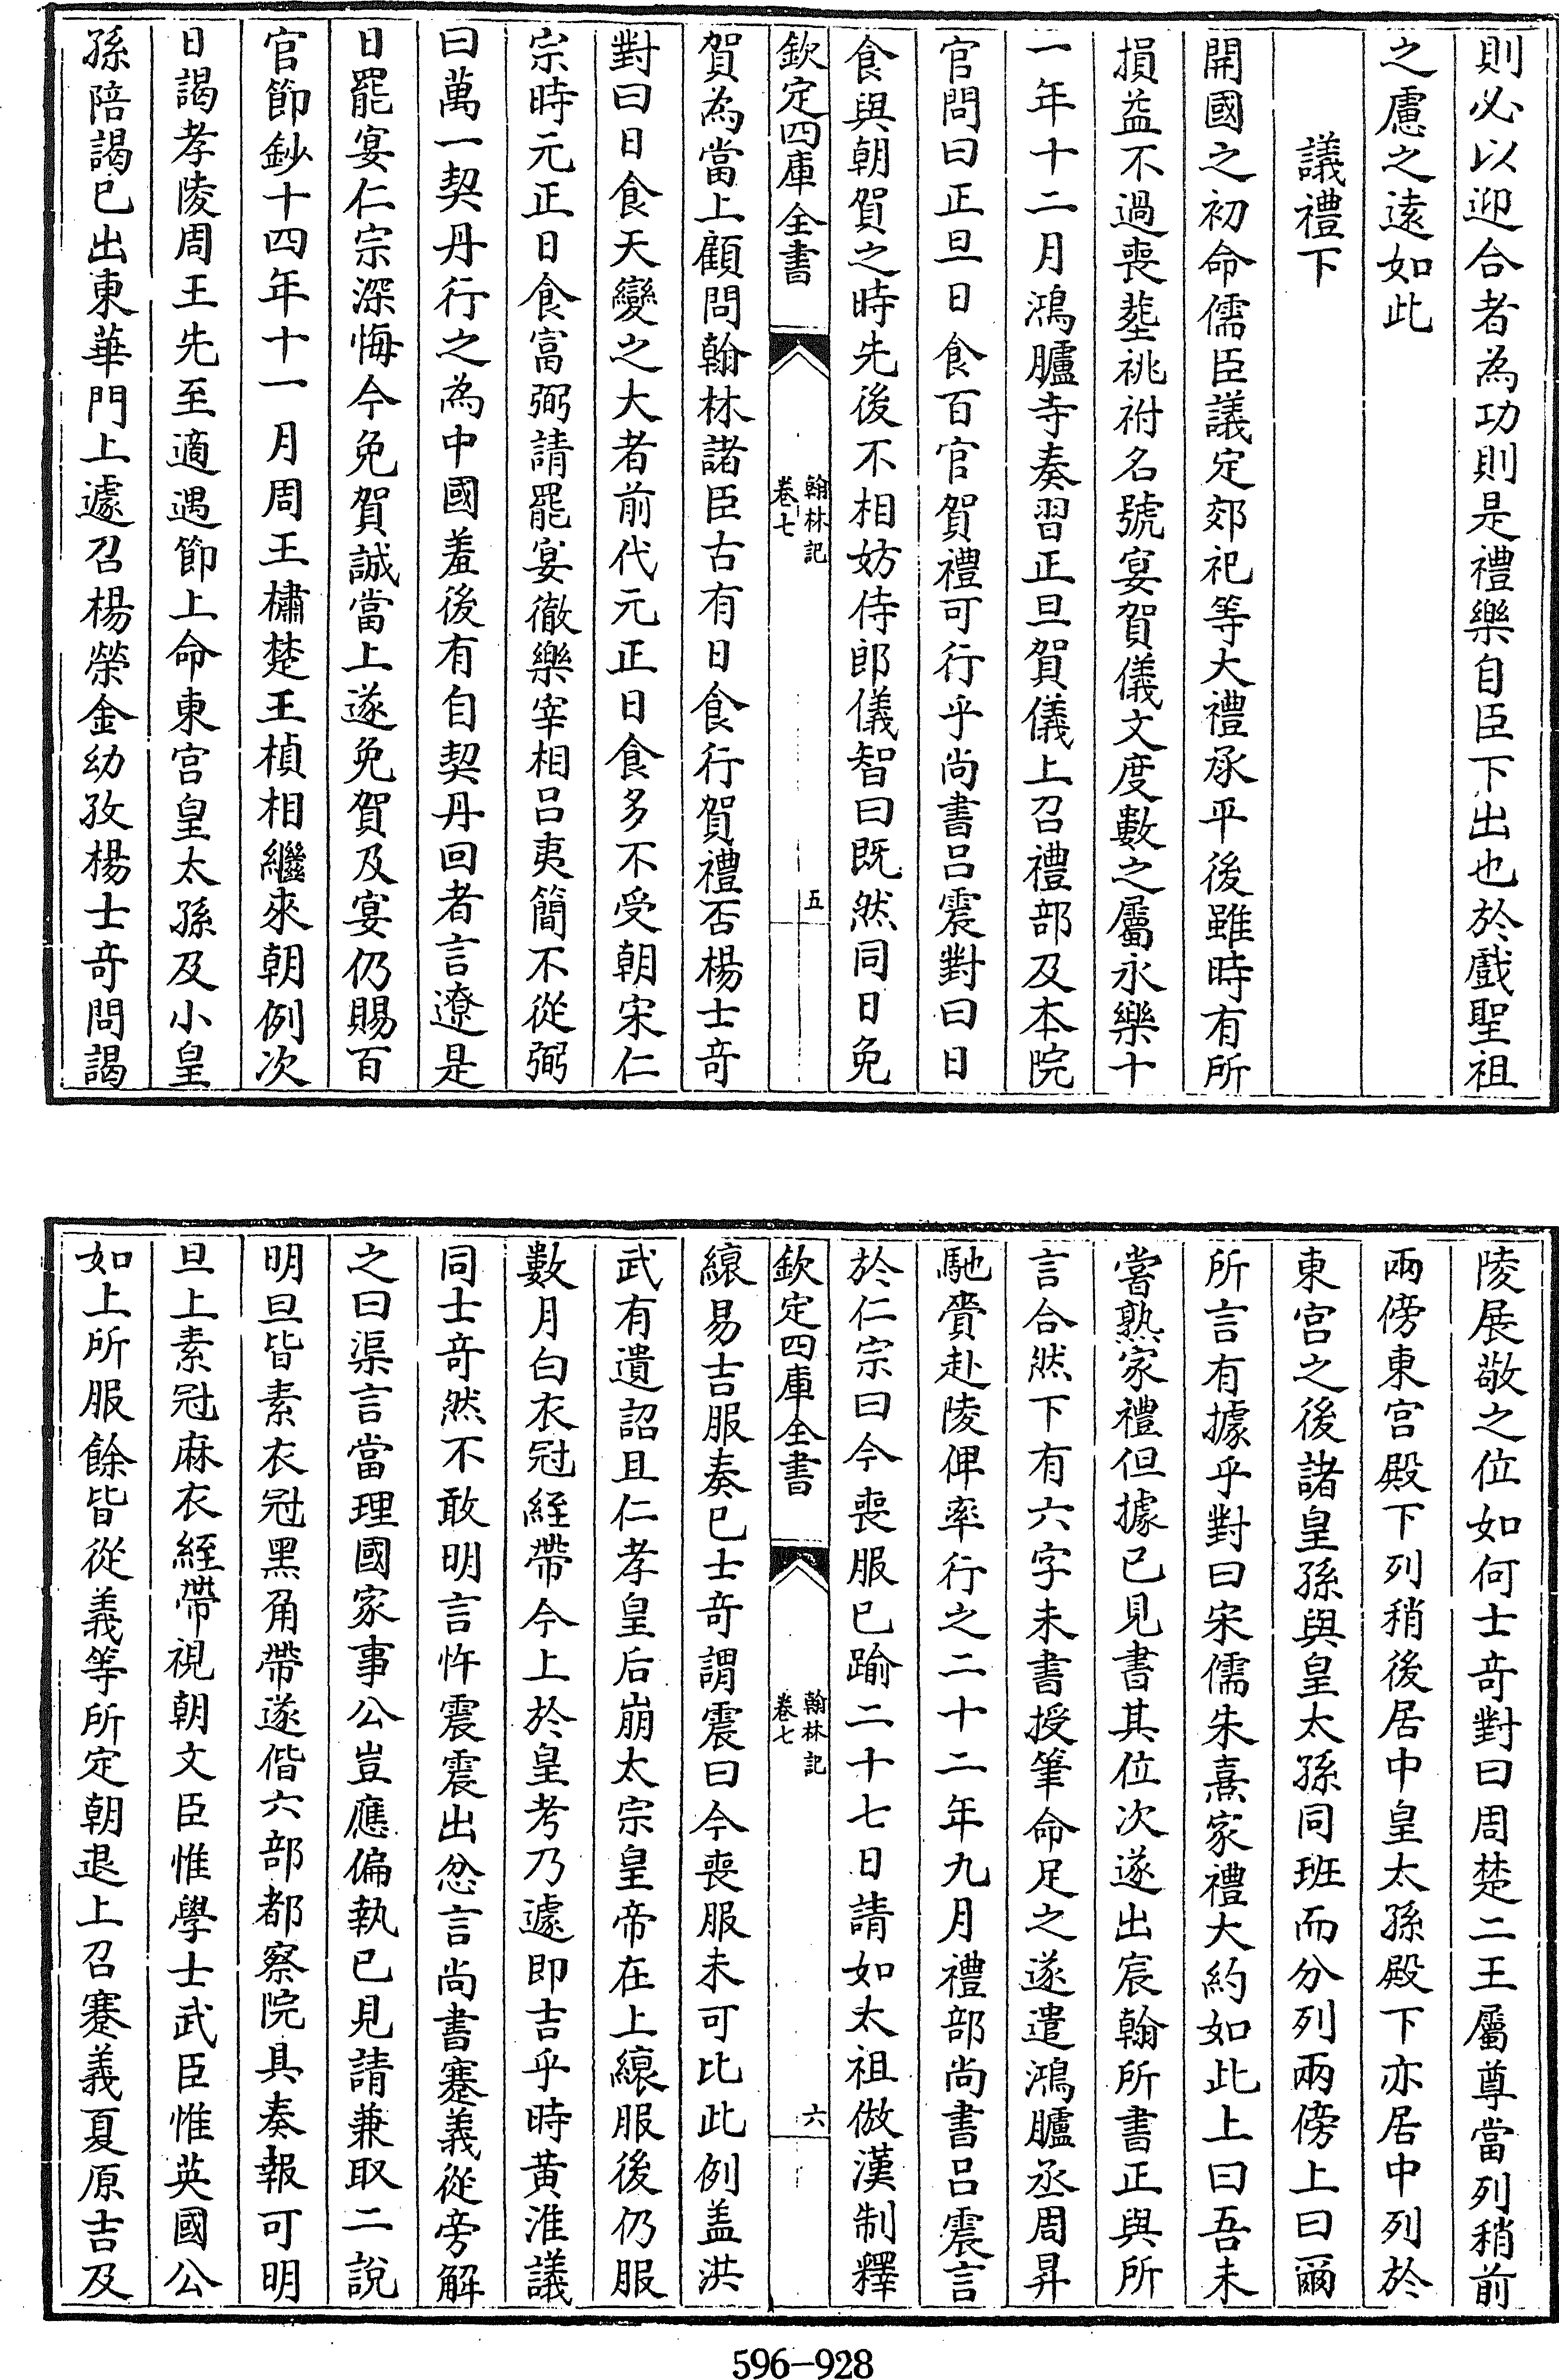 則必以迎合者為功則是禮樂自臣下出也於戲聖祖
之慮之遠如此
議禮下
開國之初命儒臣議定郊祀等大禮承平後雖時有所
損益不過喪塟祧祔名號宴賀儀文度數之屬永樂十
一年十二月鴻臚寺奏習正旦賀儀上召禮部及本院
官問曰正旦日食百官賀禮可行乎尚書吕震對曰日
食與朝賀之時先後不相妨侍郎儀智曰既然同日免
欽定四庫全書
翰林記
卷七
五
賀為當上顧問翰林諸臣古有日食行賀禮否楊士竒
對曰日食天變之大者前代元正日食多不受朝宋仁
宗時元正日食富弼請罷宴徹樂宰相吕夷簡不從弼
曰萬一契丹行之為中國羞後有自契丹回者言遼是
日罷宴仁宗深悔今免賀誠當上遂免賀及宴仍賜百
官節鈔十四年十一月周王橚楚王楨相繼來朝例次
日謁孝陵周王先至適遇節上命東宫皇太孫及小皇
孫陪謁已出東華門上遽召楊榮金幼孜楊士竒問謁
陵展敬之位如何士竒對曰周楚二王屬尊當列稍前
兩傍東宫殿下列稍後居中皇太孫殿下亦居中列於
東宫之後諸皇孫與皇太孫同班而分列兩傍上曰爾
所言有據乎對曰宋儒朱熹家禮大約如此上曰吾未
嘗熟家禮但據已見書其位次遂出宸翰所書正與所
言合然下有六字未書授筆命足之遂遣鴻臚丞周昇
馳賫赴陵俾率行之二十二年九月禮部尚書吕震言
於仁宗曰今喪服已踰二十七日請如太祖倣漢制釋
欽定四庫全書
翰林記
卷七
六
縗易吉服奏已士竒謂震曰今喪服未可比此例盖洪
武有遺詔且仁孝皇后崩太宗皇帝在上縗服後仍服
數月白衣冠絰帶今上於皇考乃遽即吉乎時黄淮議
同士竒然不敢明言忤震震出忿言尚書蹇義從旁解
之曰渠言當理國家事公豈應偏執已見請兼取二說
明旦皆素衣冠黑角帶遂偕六部都察院具奏報可明
旦上素冠麻衣絰帶視朝文臣惟學士武臣惟英國公
如上所服餘皆從義等所定朝退上召蹇義夏原吉及
596-928